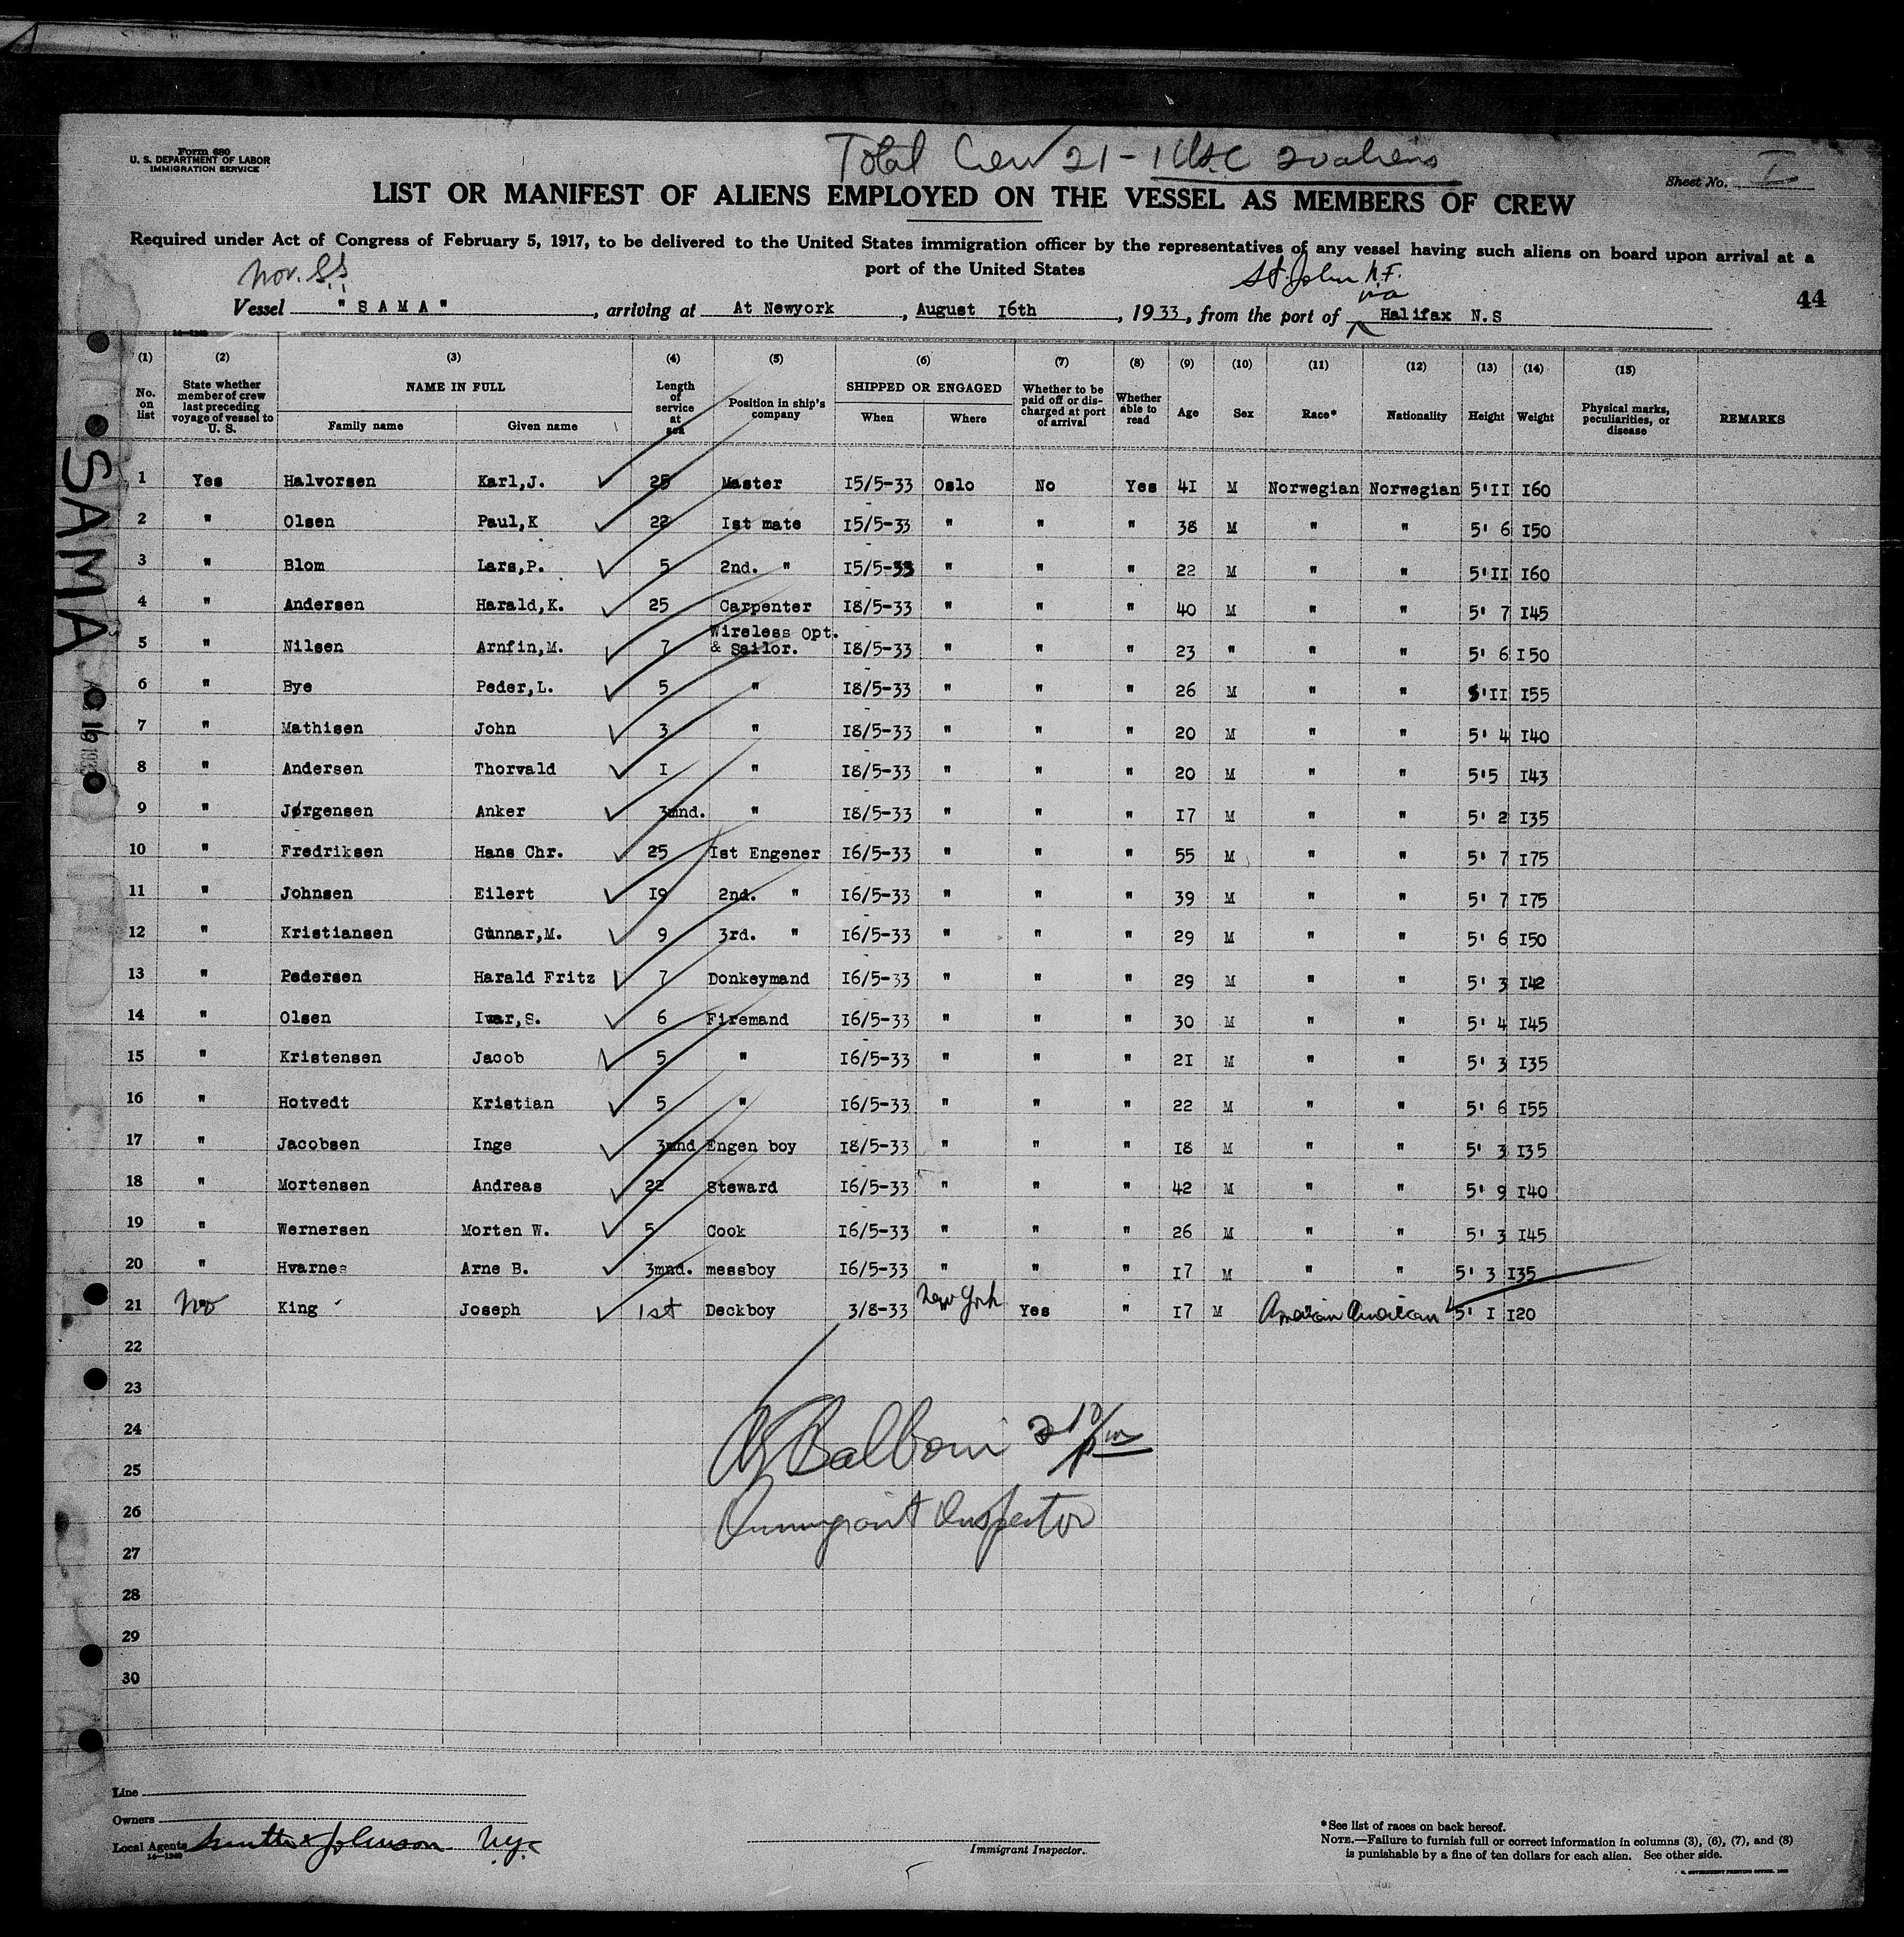 Form 680
U. S. DEPARTMENT OF LABOR
IMMIGRATION SERVICE
Total Crew 21 - 1 USC 20 aliens
Sheet No. I
LIST OR MANIFEST OF ALIENS EMPLOYED ON THE VESSEL AS MEMBERS OF CREW
Required under Act of Congress of February 5, 1917, to be delivered to the United States immigration officer by the representatives of any vessel having such aliens on board upon arrival at a
port of the United States
Nor. SS
St. John N.F.
via
44
Vessel "SAMA", arriving at At Newyork, August I6th, 1933, from the port of Halifax N.S
16—1240
(1) (2) (3) (4) (5) (6) (7) (8) (9) (10) (11) (12) (13) (14) (15)
No. on list
State whether member of crew last preceding voyage of vessel to U. S.
NAME IN FULL
Family name
Given name
Length of service at sea
Position in ship's company
SHIPPED OR ENGAGED
When
Where
Whether to be paid off or discharged at port of arrival
Whether able to read
Age
Sex
Race*
Nationality
Height
Weight
Physical marks, peculiarities, or disease
REMARKS
1 Yes Halvorsen Karl,J. 25 Master I5/5-33 Oslo No Yes 4I M Norwegian Norwegian 5'II I60
2 " Olsen Paul,K 22 Ist mate I5/5-33 " " " 38 M " " 5' 6 I50
3 " Blom Lars,P. 5 2nd. " I5/5-33 " " " 22 M " " 5'II I60
4 " Andersen Harald,K. 25 Carpenter I8/5-33 " " " 40 M " " 5' 7 I45
5 " Nilsen Arnfin,M. 7 Wireless Opt. & Sailor. I8/5-33 " " " 23 " " " 5' 6 I50
6 " Bye Peder,L. 5 " I8/5-33 " " " 26 M " " 5'II I55
7 " Mathisen John 3 " I8/5-33 " " " 20 M " " 5' 4 I40
8 " Andersen Thorvald I " I8/5-33 " " " 20 M " " 5'5 I43
9 " Jørgensen Anker 3mnd. " I8/5-33 " " " I7 M " " 5' 2 I35
10 " Fredriksen Hans Chr. 25 Ist Engener I6/5-33 " " " 55 M " " 5' 7 I75
11 " Johnsen Eilert I9 2nd. " I6/5-33 " " " 39 M " " 5' 7 I75
12 " Kristiansen Gunnar,M. 9 3rd. " I6/5-33 " " " 29 M " " 5' 6 I50
13 " Pedersen Harald Fritz 7 Donkeymand I6/5-33 " " " 29 M " " 5' 3 I42
14 " Olsen Ivar,S. 6 Firemand I6/5-33 " " " 30 M " " 5' 4 I45
15 " Kristensen Jacob 5 " I6/5-33 " " " 2I M " " 5' 3 I35
16 " Hotvedt Kristian 5 " I6/5-33 " " " 22 M " " 5' 6 I55
17 " Jacobsen Inge 3mnd Engen boy I8/5-33 " " " I8 M " " 5' 3 I35
18 " Mortensen Andreas 22 Steward I6/5-33 " " " 42 M " " 5' 9 I40
19 " Wernersen Morten W. 5 Cook I6/5-33 " " " 26 M " " 5' 3 I45
20 " Hvarnes Arne B. 3mnd. messboy I6/5-33 " " " I7 M " " 5' 3 I35
21 No King Joseph 1st Deckboy 3/8-33 New York Yes " I7 M American American 5' I I20
22
23
24
25
26
27
28
29
30
Balboni 2 10 pm
Immigrant Inspector
SAMA
Line
Owners
Local Agents Smith & Johnson N.Y.C
16—1240
Immigrant Inspector.
*See list of races on back hereof.
NOTE.—Failure to furnish full or correct information in columns (3), (6), (7), and (8)
is punishable by a fine of ten dollars for each alien. See other side.